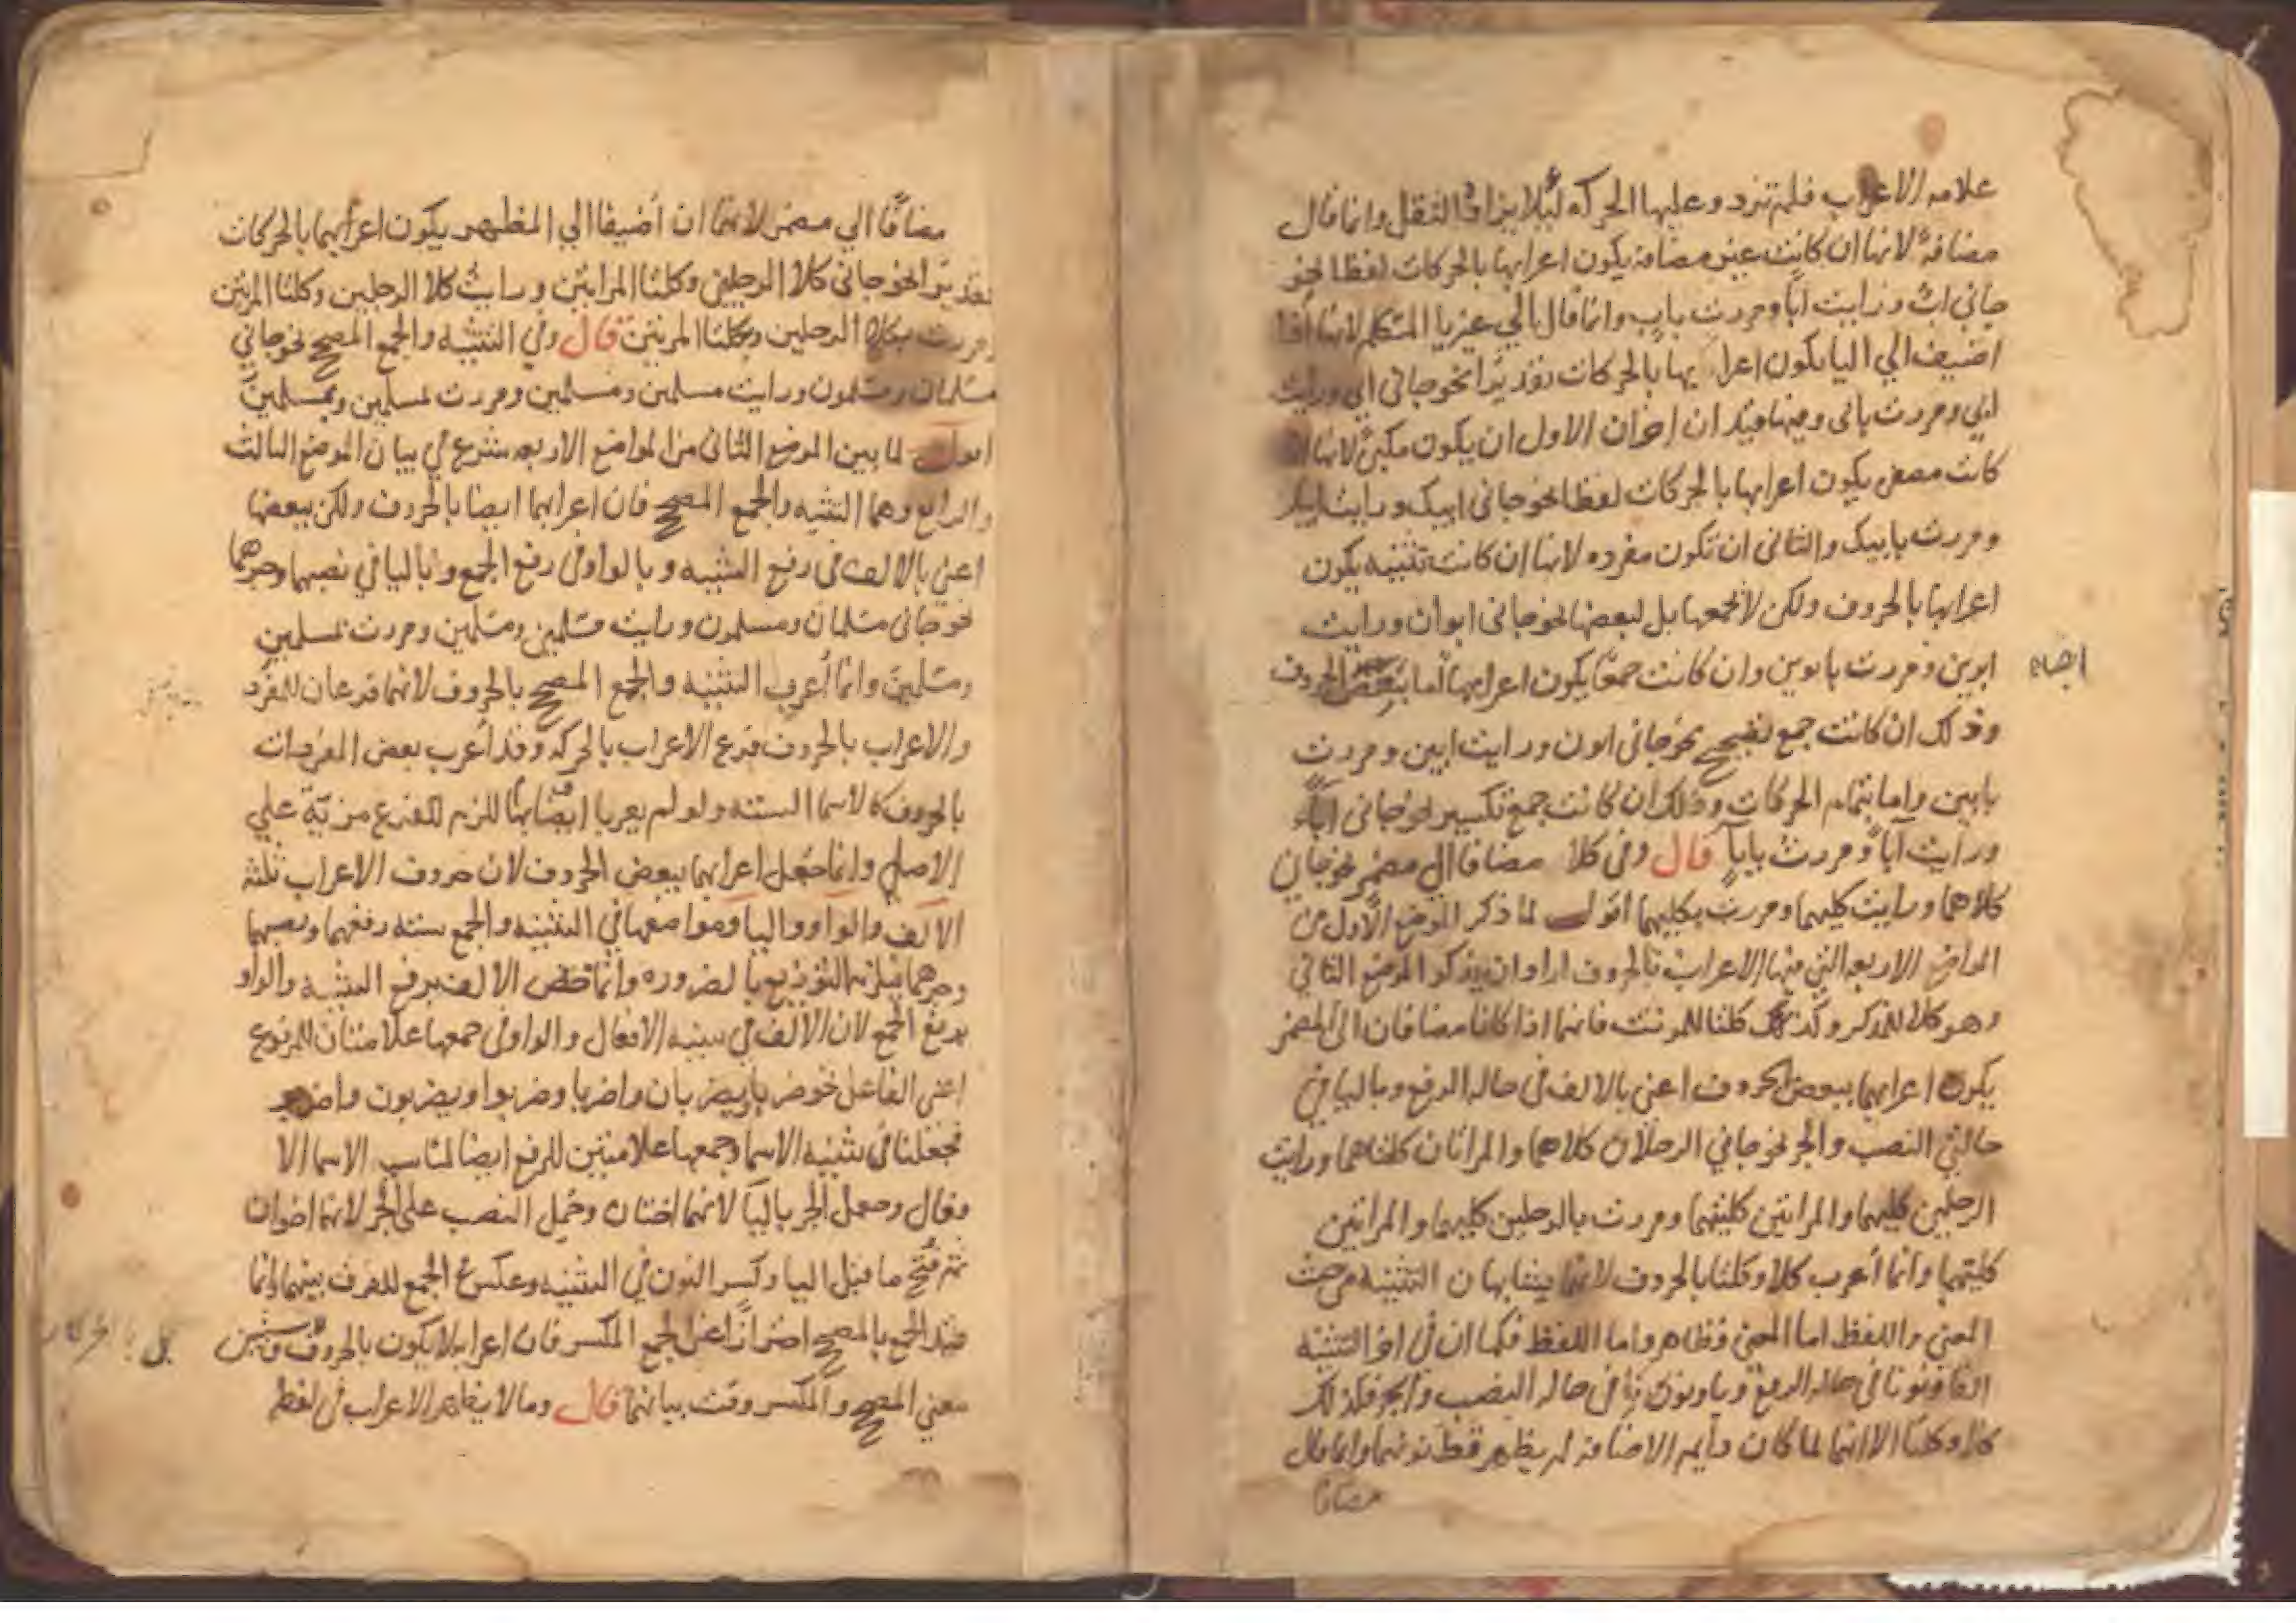 علامه الاعراب فلم تزد وعليها الحركه ليلا يزاد الثقل وانما قال
مضافة لانها ان كانت غير مضافة يكون اعرابها بالحركات لفظا نحو
جاني اب ورايت ابا ومررت باب وانما قال الي غير يا المتكلم لانها اذا
اضيف الي اليا يكون اعرابها بالحركات تقديرا نحو جاني ابي ورايت
ابي ومررت بابي وفيها قيدان اخران الاول ان يكون مكبرة لانها ان
كانت مصغر يكون اعرابها بالحركات لفظا نحو جاني ابيك ورايت ابيك
ومررت بابيك والثاني ان تكون مفرده لانها ان كانت تثنيه يكون
اعرابها بالحروف ولكن لا بجمعها بل ببعضها نحو جاني ابوان ورايت
ابوين ومررت بابوين وان كانت جمعا يكون اعرابها اما ببعض الحروف
ايضا
وذلك ان كانت جمع تصحيح نحو جاني ابون ورايت ابين ومررت
بابين واما بتمام الحركات وذلك ان كانت جمع تكسير نحو جاني اباء
ورايت اباء ومررت باباء قال وفي كلا مضافا الي مضمر نحو جاني
كلاهما ورايت كليهما ومررت بكليهما اقول لما ذكر الموضع الاول من
المواضع الاربعه التي فيها الاعراب بالحروف اراد ان يذكر الموضع الثاني
وهو كلا للمذكر وكذلك كلتا للمونث فانهما اذا كانا مضافان الي المضمر
يكون اعرابهما ببعض الحروف اعني بالالف في حاله الرفع وباليا في
حالتي النصب والجر نحو جاني الرجلان كلاهما والمراتان كلتاهما ورايت
الرجلين كليهما والمراتين كلتيهما ومررت بالرجلين كليهما والمراتين
كلتيهما وانما أعرب كلا وكلتا بالحروف لانهما يشابهان التثنيه من حيث
المعني واللفظ اما المعني فظاهر واما اللفظ فكما ان في اخر التثنيه
الفا ونونا في حاله الرفع ويا ونونا في حاله النصب والجر فكذلك
كلا وكلتا الا انهما لما كان دايم الاضافه لم يظهر قط نونهما وانما قال
مضافا
مضافا الي مضمر لانهما ان أضيفا الي المظهر يكون اعرابهما بالحركات
تقديرا نحو جاني كلا الرجلين وكلتا المراتين ورايت كلا الرجلين وكلتا المرتين
ومررت بكلا الرجلين وبكلتا المرتين قال وفي التثنيه والجمع المصحح نحو جاني
مسلمان ومسلمون ورايت مسلمين ومسلمين ومررت بمسلمين وبمسلمين
اقول لما بين الموضع الثاني من المواضع الاربعه شرع في بيان الموضع الثالث
والرابع وهما التثنيه والجمع المصحح فان اعرابهما ايضا بالحروف ولكن ببعضها
اعني بالالف في رفع التثنيه وبالواو في رفع الجمع وباليا في نصبهما وجرهما
نحو جاني مسلمان ومسلمون ورايت مسلمين ومسلمين ومررت بمسلمين
ومسلمين وانما أعرب التثنيه والجمع المصحح بالحروف لانهما فرعان للمفرد
والاعراب بالحروف فرع الاعراب بالحركه وقد أعرب بعض المفردات
بالحروف كالاسما السته ولو لم يعربا ايضا بها للزم للفرع مزية علي
الاصلي وانما جعل اعرابهما ببعض الحروف لان حروف الاعراب ثلثه
الالف والواو واليا ومواضعها في التثنيه والجمع سته رفعهما ونصبهما
وجرهما فيلزم التوزيع بالضروره وانما خص الالف برفع التثنيه والواو
برفع الجمع لان الالف في تثنيه الافعال والواو في جمعها علامتان للمرفوع
اعني الفاعل نحو ضربا يضربان واضربا وضربوا ويضربون واضربوا
فجعلتا في تثنيه الاسما وجمعها علامتين للرفع ايضا لمناسب الاسما الا
وفعال وجعل الجر باليا لانهما اختان وحمل النصب علي الجر لانهما اخوان
ثم فتح ما قبل اليا وكسر النون في التثنيه وعكس في الجمع للفرق بينهما وانما
قيد الجمع بالمصحح احترازا عن الجمع المكسر فان اعرابه لا يكون بالحروف
بل بالحركات
معني المصحح والمكسر وقت بيانهما قال وما لا يظهر الاعراب في لفظه